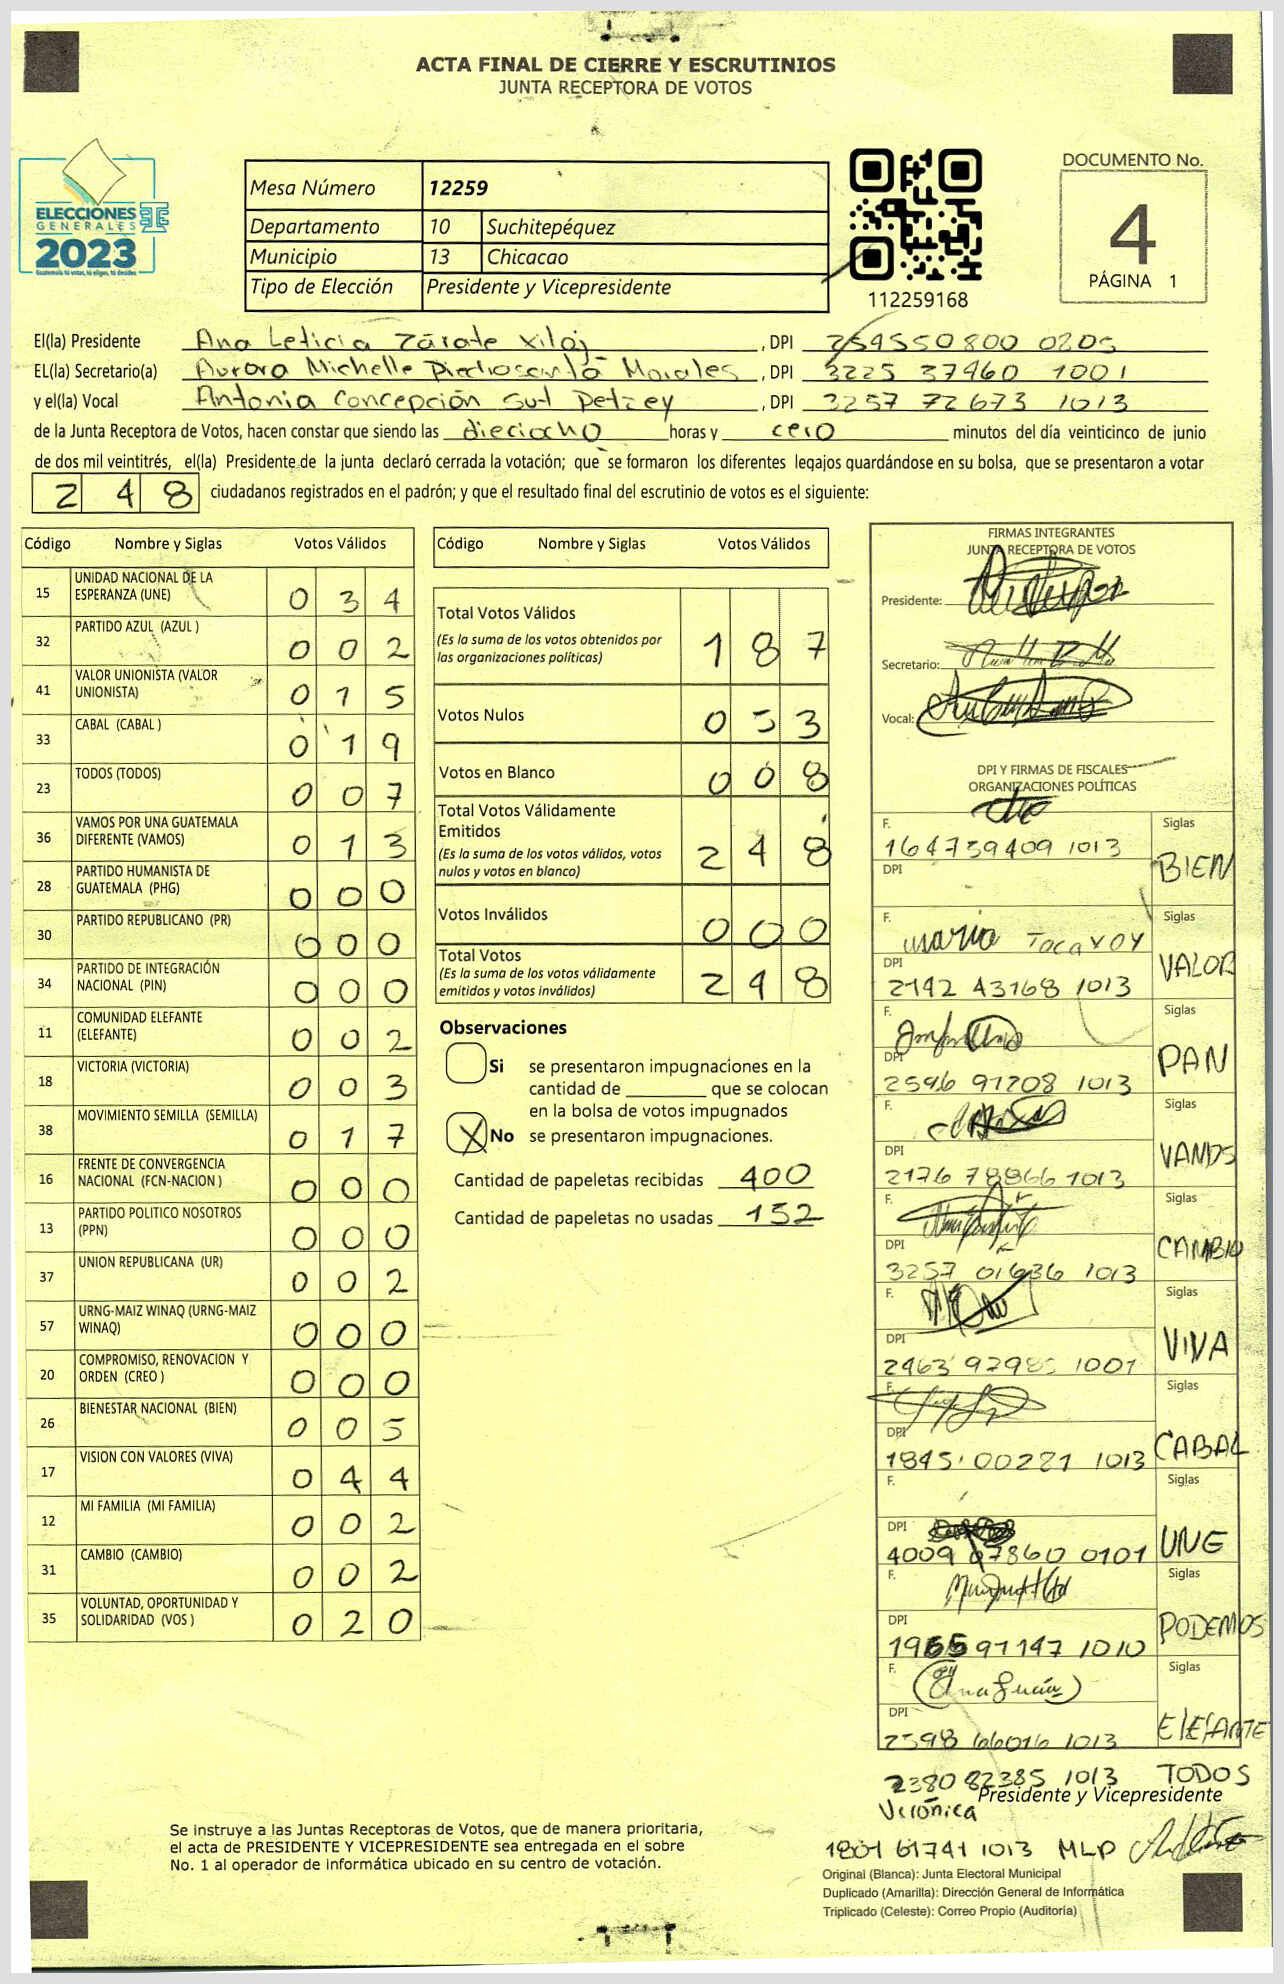 ACTA FINAL DE CIERRE Y ESCRUTINIOS
JUNTA RECEPTORA DE VOTOS
ELECCIONES
GENERALES
2023
Guatemala tú votas, tú eliges, tú decides
Mesa Número 12259
Departamento 10 Suchitepéquez
Municipio 13 Chicacao
Tipo de Elección Presidente y Vicepresidente
112259168
DOCUMENTO No.
4
PÁGINA 1
El(la) Presidente Ana Leticia Zárate Xiloj, DPI 254550800 0205
EL(la) Secretario(a) Aurora Michelle Piedrasanta Morales, DPI 3225 37460 1001
y el(la) Vocal Antonia Concepción Sut Petzey, DPI 3257 72673 1013
de la Junta Receptora de Votos, hacen constar que siendo las dieciocho horas y cero minutos del día veinticinco de junio
de dos mil veintitrés, el(la) Presidente de la junta declaró cerrada la votación; que se formaron los diferentes legajos guardándose en su bolsa, que se presentaron a votar
248 ciudadanos registrados en el padrón; y que el resultado final del escrutinio de votos es el siguiente:
Código Nombre y Siglas Votos Válidos
15 UNIDAD NACIONAL DE LA ESPERANZA (UNE) 034
32 PARTIDO AZUL (AZUL ) 002
41 VALOR UNIONISTA (VALOR UNIONISTA) 015
33 CABAL (CABAL ) 019
23 TODOS (TODOS) 007
36 VAMOS POR UNA GUATEMALA DIFERENTE (VAMOS) 013
28 PARTIDO HUMANISTA DE GUATEMALA (PHG) 000
30 PARTIDO REPUBLICANO (PR) 000
34 PARTIDO DE INTEGRACIÓN NACIONAL (PIN) 000
11 COMUNIDAD ELEFANTE (ELEFANTE) 002
18 VICTORIA (VICTORIA) 003
38 MOVIMIENTO SEMILLA (SEMILLA) 017
16 FRENTE DE CONVERGENCIA NACIONAL (FCN-NACION ) 000
13 PARTIDO POLITICO NOSOTROS (PPN) 000
37 UNION REPUBLICANA (UR) 002
57 URNG-MAIZ WINAQ (URNG-MAIZ WINAQ) 000
20 COMPROMISO, RENOVACION Y ORDEN (CREO ) 000
26 BIENESTAR NACIONAL (BIEN) 005
17 VISION CON VALORES (VIVA) 044
12 MI FAMILIA (MI FAMILIA) 002
31 CAMBIO (CAMBIO) 002
35 VOLUNTAD, OPORTUNIDAD Y SOLIDARIDAD (VOS ) 020
Código Nombre y Siglas Votos Válidos
Total Votos Válidos 187
(Es la suma de los votos obtenidos por
las organizaciones políticas)
Votos Nulos 053
Votos en Blanco 008
Total Votos Válidamente
Emitidos 248
(Es la suma de los votos válidos, votos
nulos y votos en blanco)
Votos Inválidos 000
Total Votos 248
(Es la suma de los votos válidamente
emitidos y votos inválidos)
Observaciones
Si se presentaron impugnaciones en la
cantidad de ________ que se colocan
en la bolsa de votos impugnados
X No se presentaron impugnaciones.
Cantidad de papeletas recibidas 400
Cantidad de papeletas no usadas 152
FIRMAS INTEGRANTES
JUNTA RECEPTORA DE VOTOS
Presidente:
Secretario:
Vocal:
DPI Y FIRMAS DE FISCALES
ORGANIZACIONES POLÍTICAS
F. Siglas
164759409 1013
DPI BIEN
F. Maria Tocavoy Siglas
DPI VALOR
2142 43168 1013
F. Siglas
DPI PAN
2596 91208 1013
F. Siglas
DPI VAMOS
2176 78866 1013
F. Siglas
DPI CAMBIO
3257 01636 1013
F. Siglas
DPI VIVA
2463 97985 1001
F. Siglas
DPI CABAL
1845 00281 1013
F. Siglas
DPI UNE
4009 07860 0101
F. Siglas
DPI PODEMOS
1965 91147 1010
F. Ana Lucía Siglas
DPI ELEFANTE
2598 66016 1013
2380 82385 1013 TODOS
Presidente y Vicepresidente
Verónica
1801 61741 1013 MLP
Se instruye a las Juntas Receptoras de Votos, que de manera prioritaria,
el acta de PRESIDENTE Y VICEPRESIDENTE sea entregada en el sobre
No. 1 al operador de informática ubicado en su centro de votación.
Original (Blanca): Junta Electoral Municipal
Duplicado (Amarilla): Dirección General de Informática
Triplicado (Celeste): Correo Propio (Auditoría)